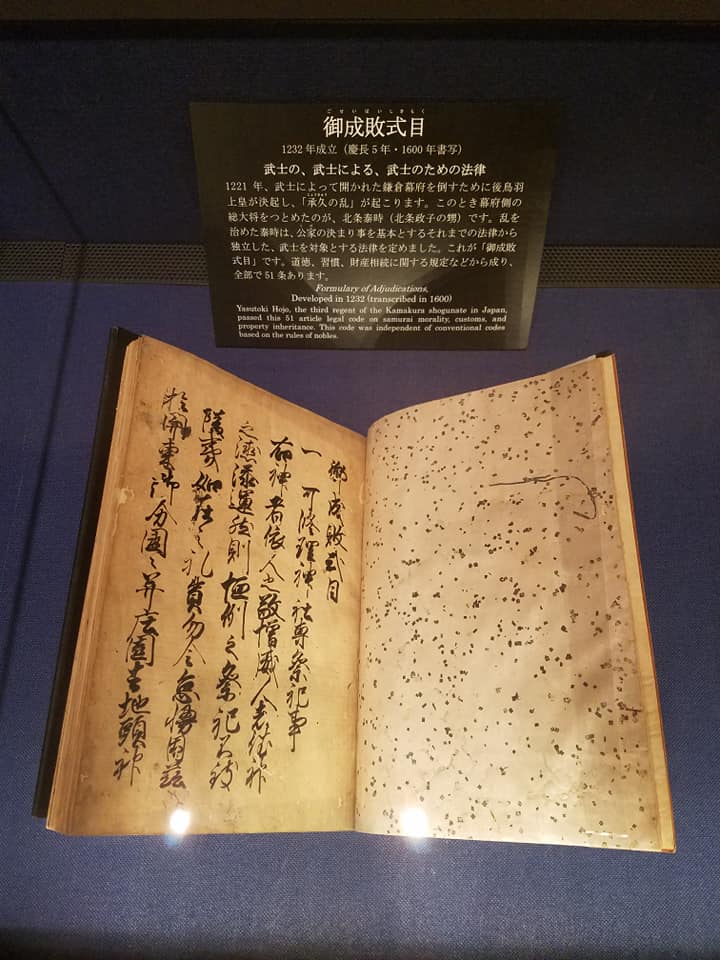 ごせいばいしきもく
御成敗式目
1232年成立（慶長5年・1600年書写）
武士の、武士による、武士のための法律
1221年、武士によって開かれた鎌倉幕府を倒すために後鳥羽
じょうきゅう
上皇が決起し、「承久の乱」が起こります。このとき幕府側の
総大将をつとめたのが、北条泰時（北条政子の甥）です。乱を
治めた泰時は、公家の決まり事を基本とするそれまでの法律から
独立した、武士を対象とする法律を定めました。これが「御成敗
式目」です。道徳、習慣、財産相続に関する規定などから成り、
全部で51条あります。
Formulary of Adjudications,
Developed in 1232 (transcribed in 1600)
Yasutoki Hojo, the third regent of the Kamakura shogunate in Japan,
passed this 51 article legal code on samurai morality, customs, and
property inheritance. This code was independent of conventional codes
based on the rules of nobles.
御成敗式目
一 可修理神社専祭祀事
右神者依人之敬増威人者依神
之徳添運然則恒例之祭祀不致
陵夷如在之礼奠勿令怠慢因茲
於関東御分国々并庄園者地頭神